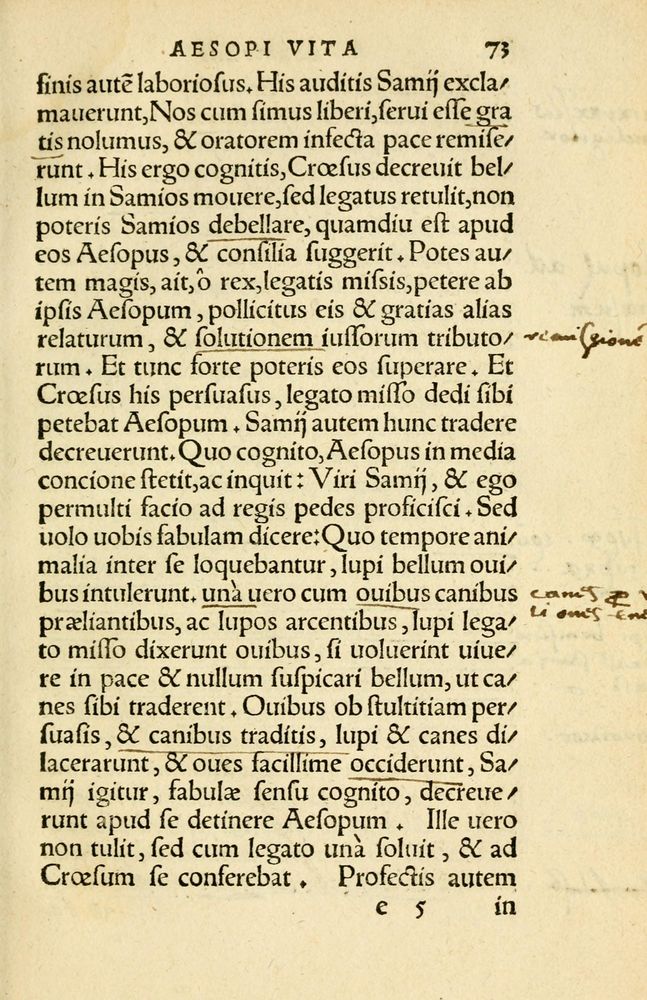 AESOPI VITA 73
finis autẽ laboriosus. His auditis Samij excla/
mauerunt, Nos cum simus liberi, serui esse gra
tis nolumus, & oratorem infecta pace remise/
runt. His ergo cognitis, Crœsus decreuit bel/
lum in Samios mouere, sed legatus retulit, non
poteris Samios debellare, quamdiu est apud
eos Aesopus, & consilia suggerit. Potes au/
tem magis, ait, ô rex, legatis missis, petere ab
ipsis Aesopum, pollicitus eis & gratias alias
relaturum, & solutionem iussorum tributo/ remissionẽ
rum. Et tunc forte poteris eos superare. Et
Crœsus his persuasus, legato misso dedi sibi
petebat Aesopum. Samij autem hunc tradere
decreuerunt. Quo cognito, Aesopus in media
concione stetit, ac inquit: Viri Samij, & ego
permulti facio ad regis pedes proficisci. Sed
uolo uobis fabulam dicere: Quo tempore ani/
malia inter se loquebantur, lupi bellum oui/
bus intulerunt. unà uero cum ouibus canibus
præliantibus, ac lupos arcentibus, lupi lega/
to misso dixerunt ouibus, si uoluerint uiue/
re in pace & nullum suspicari bellum, ut ca/
nes sibi traderent. Ouibus ob stultitiam per/
suasis, & canibus traditis, lupi & canes di/
lacerarunt, & oues facillime occiderunt, Sa/
mij igitur, fabulæ sensu cognito, decreue/
runt apud se detinere Aesopum. Ille uero
non tulit, sed cum legato unà soluit, & ad
Crœsum se conferebat. Profectis autem
e 5 in